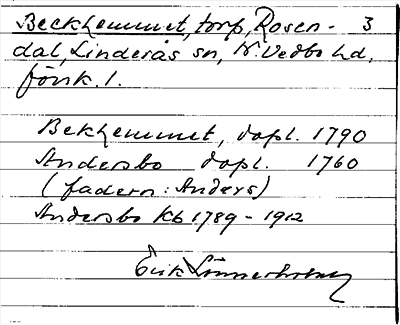 Beckhemmet, torp, Rosen- 3
dal, Linderås sn, N. Vedbo hd,
försk. 1.
Bekhemmet, dopl. 1790
Andersbo dopl. 1760
(fadern: Anders)
Andersbo Kb 1789-1912
Erik